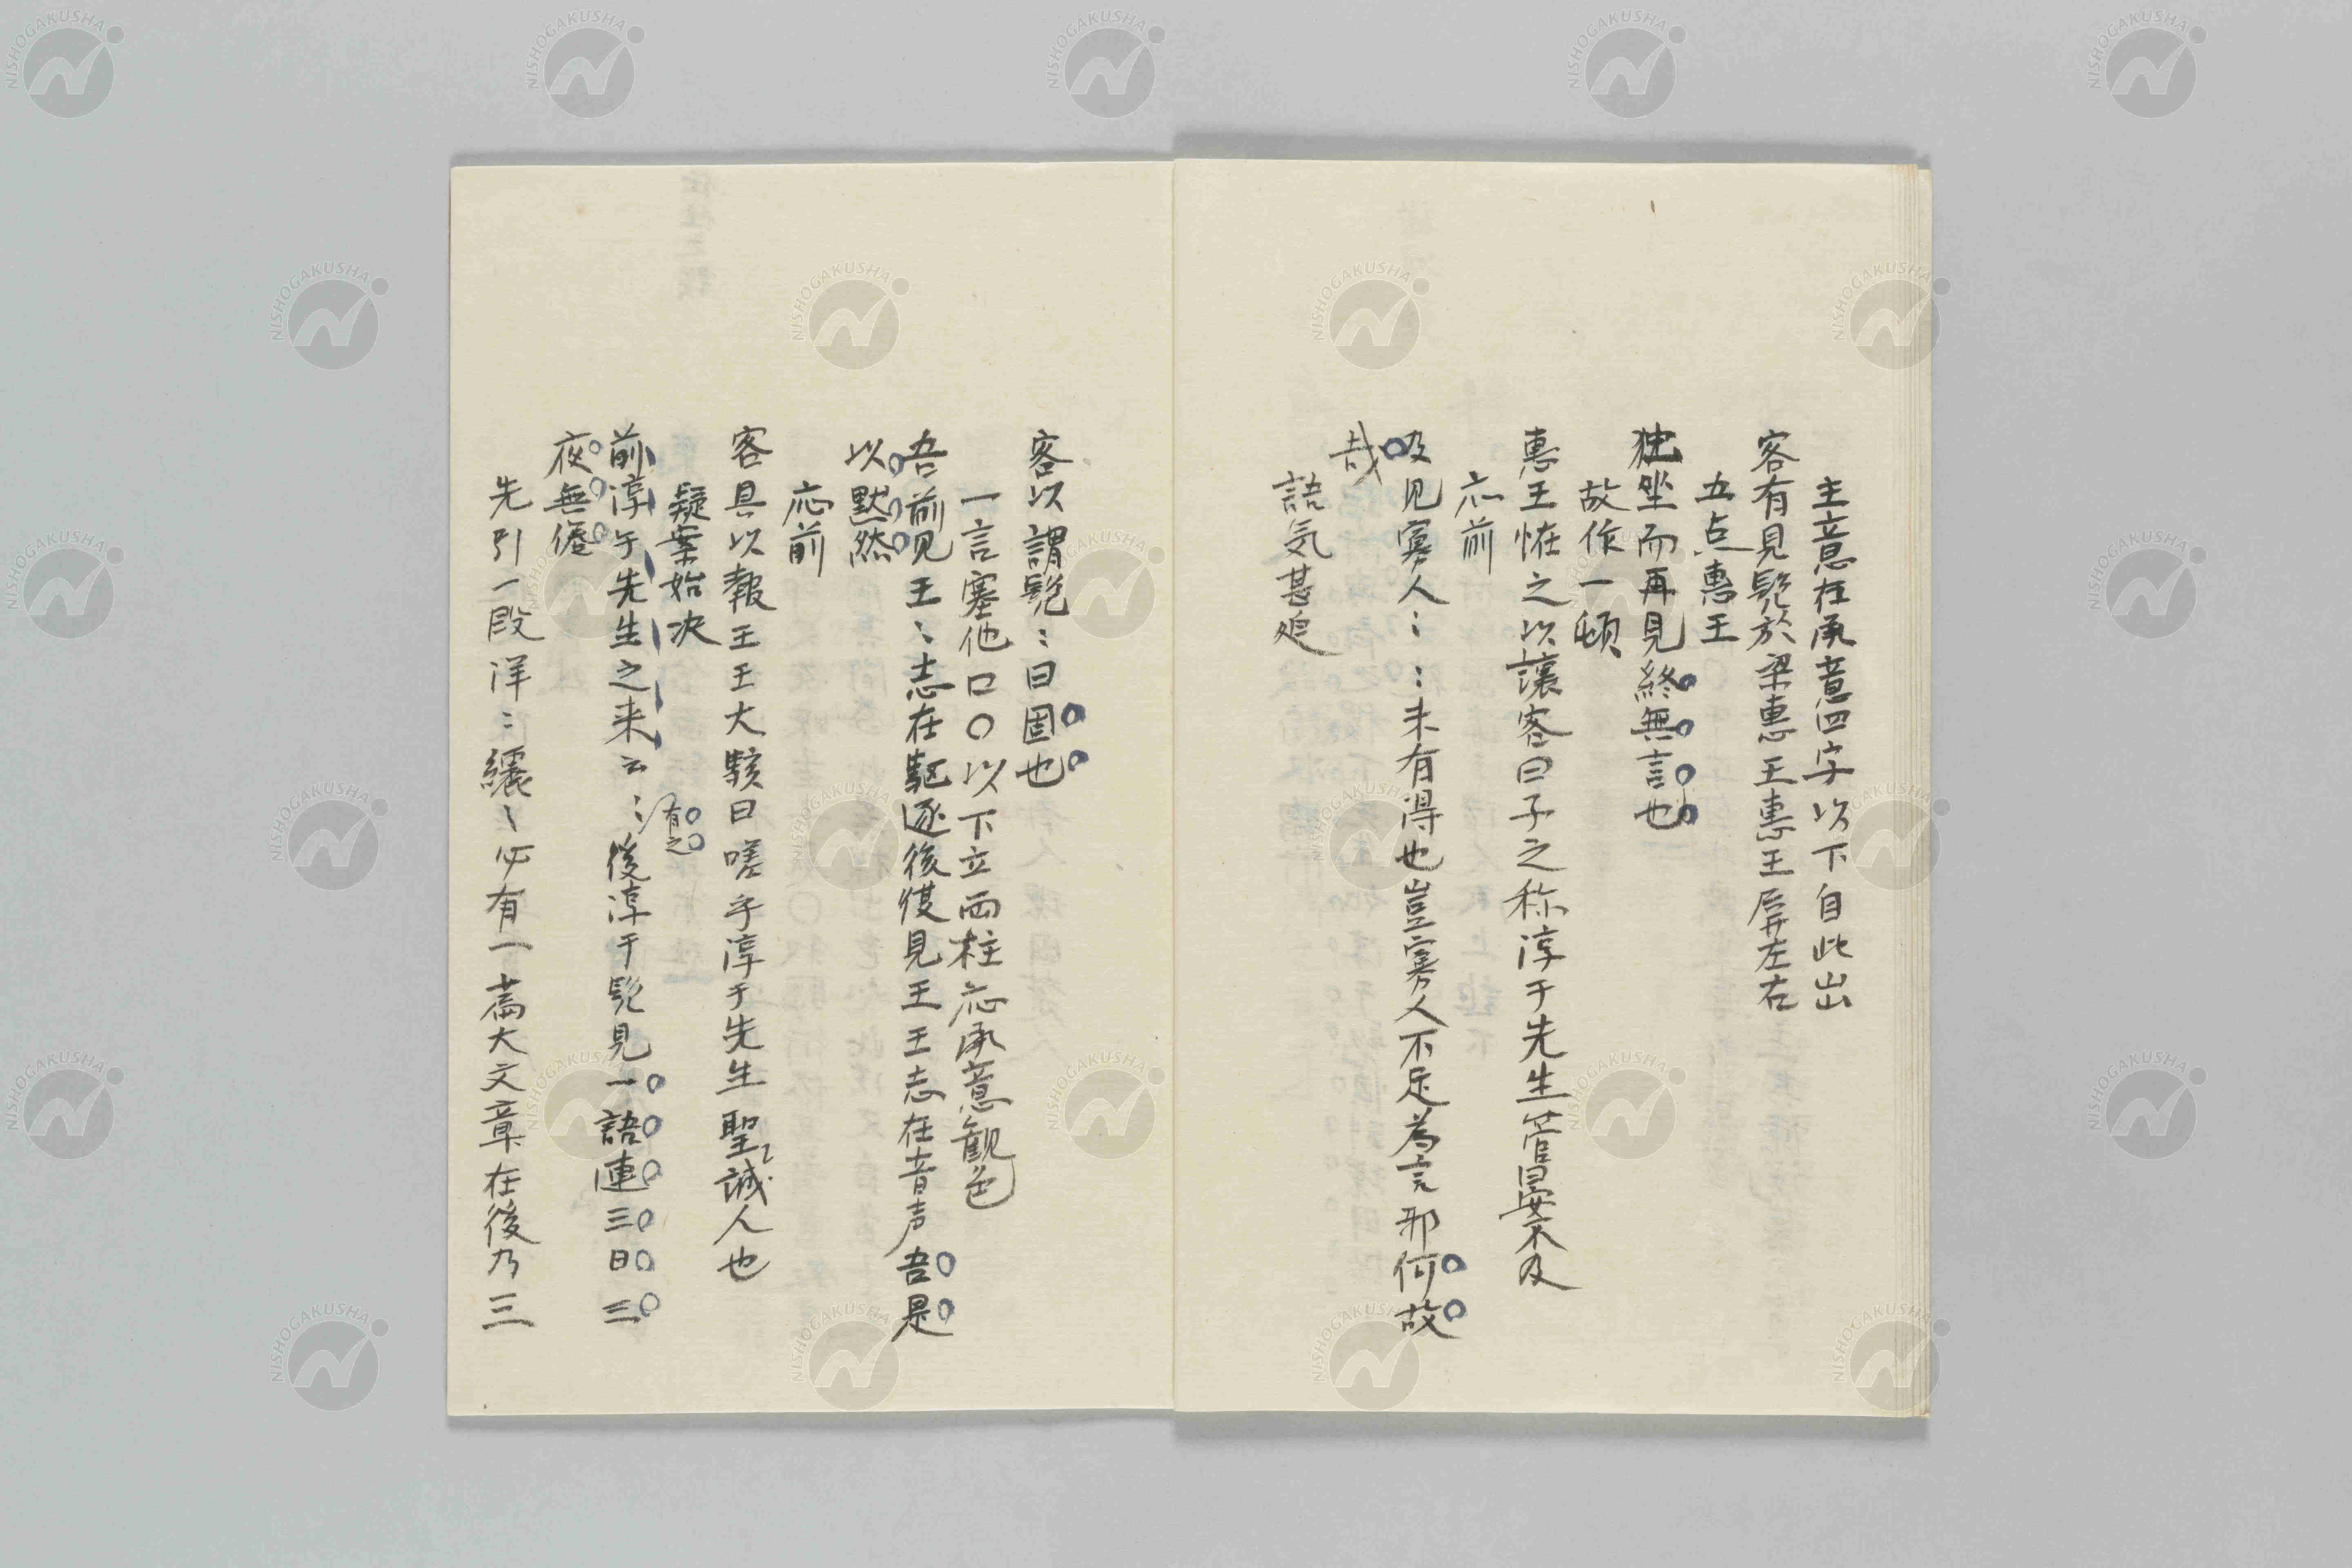 主意在承意四字以下自此出
客有見髡於梁惠王惠王屏左右
五点惠王
独坐而再見終無言也
故作一頓
惠王恠之以讓客曰子之称淳于先生管晏不及
応前
及見寡人〻〻未有得也豈寡人不足為言邪何故
哉
語気甚廹
客以謂髡〻曰固也
一言塞他口〇以下立両柱応承意観色
吾前見王〻志在駆逐後復見王王志在音声吾是
以黙然
応前
客具以報王王大駭曰嗟乎淳于先生誠聖人也
疑案始决
前淳于先生之来云〻後淳于髡見一語連三日三
有之
夜無倦
先引一段洋〻纚〻必有一篇大文章在後乃三
NISHOGAKUSHA